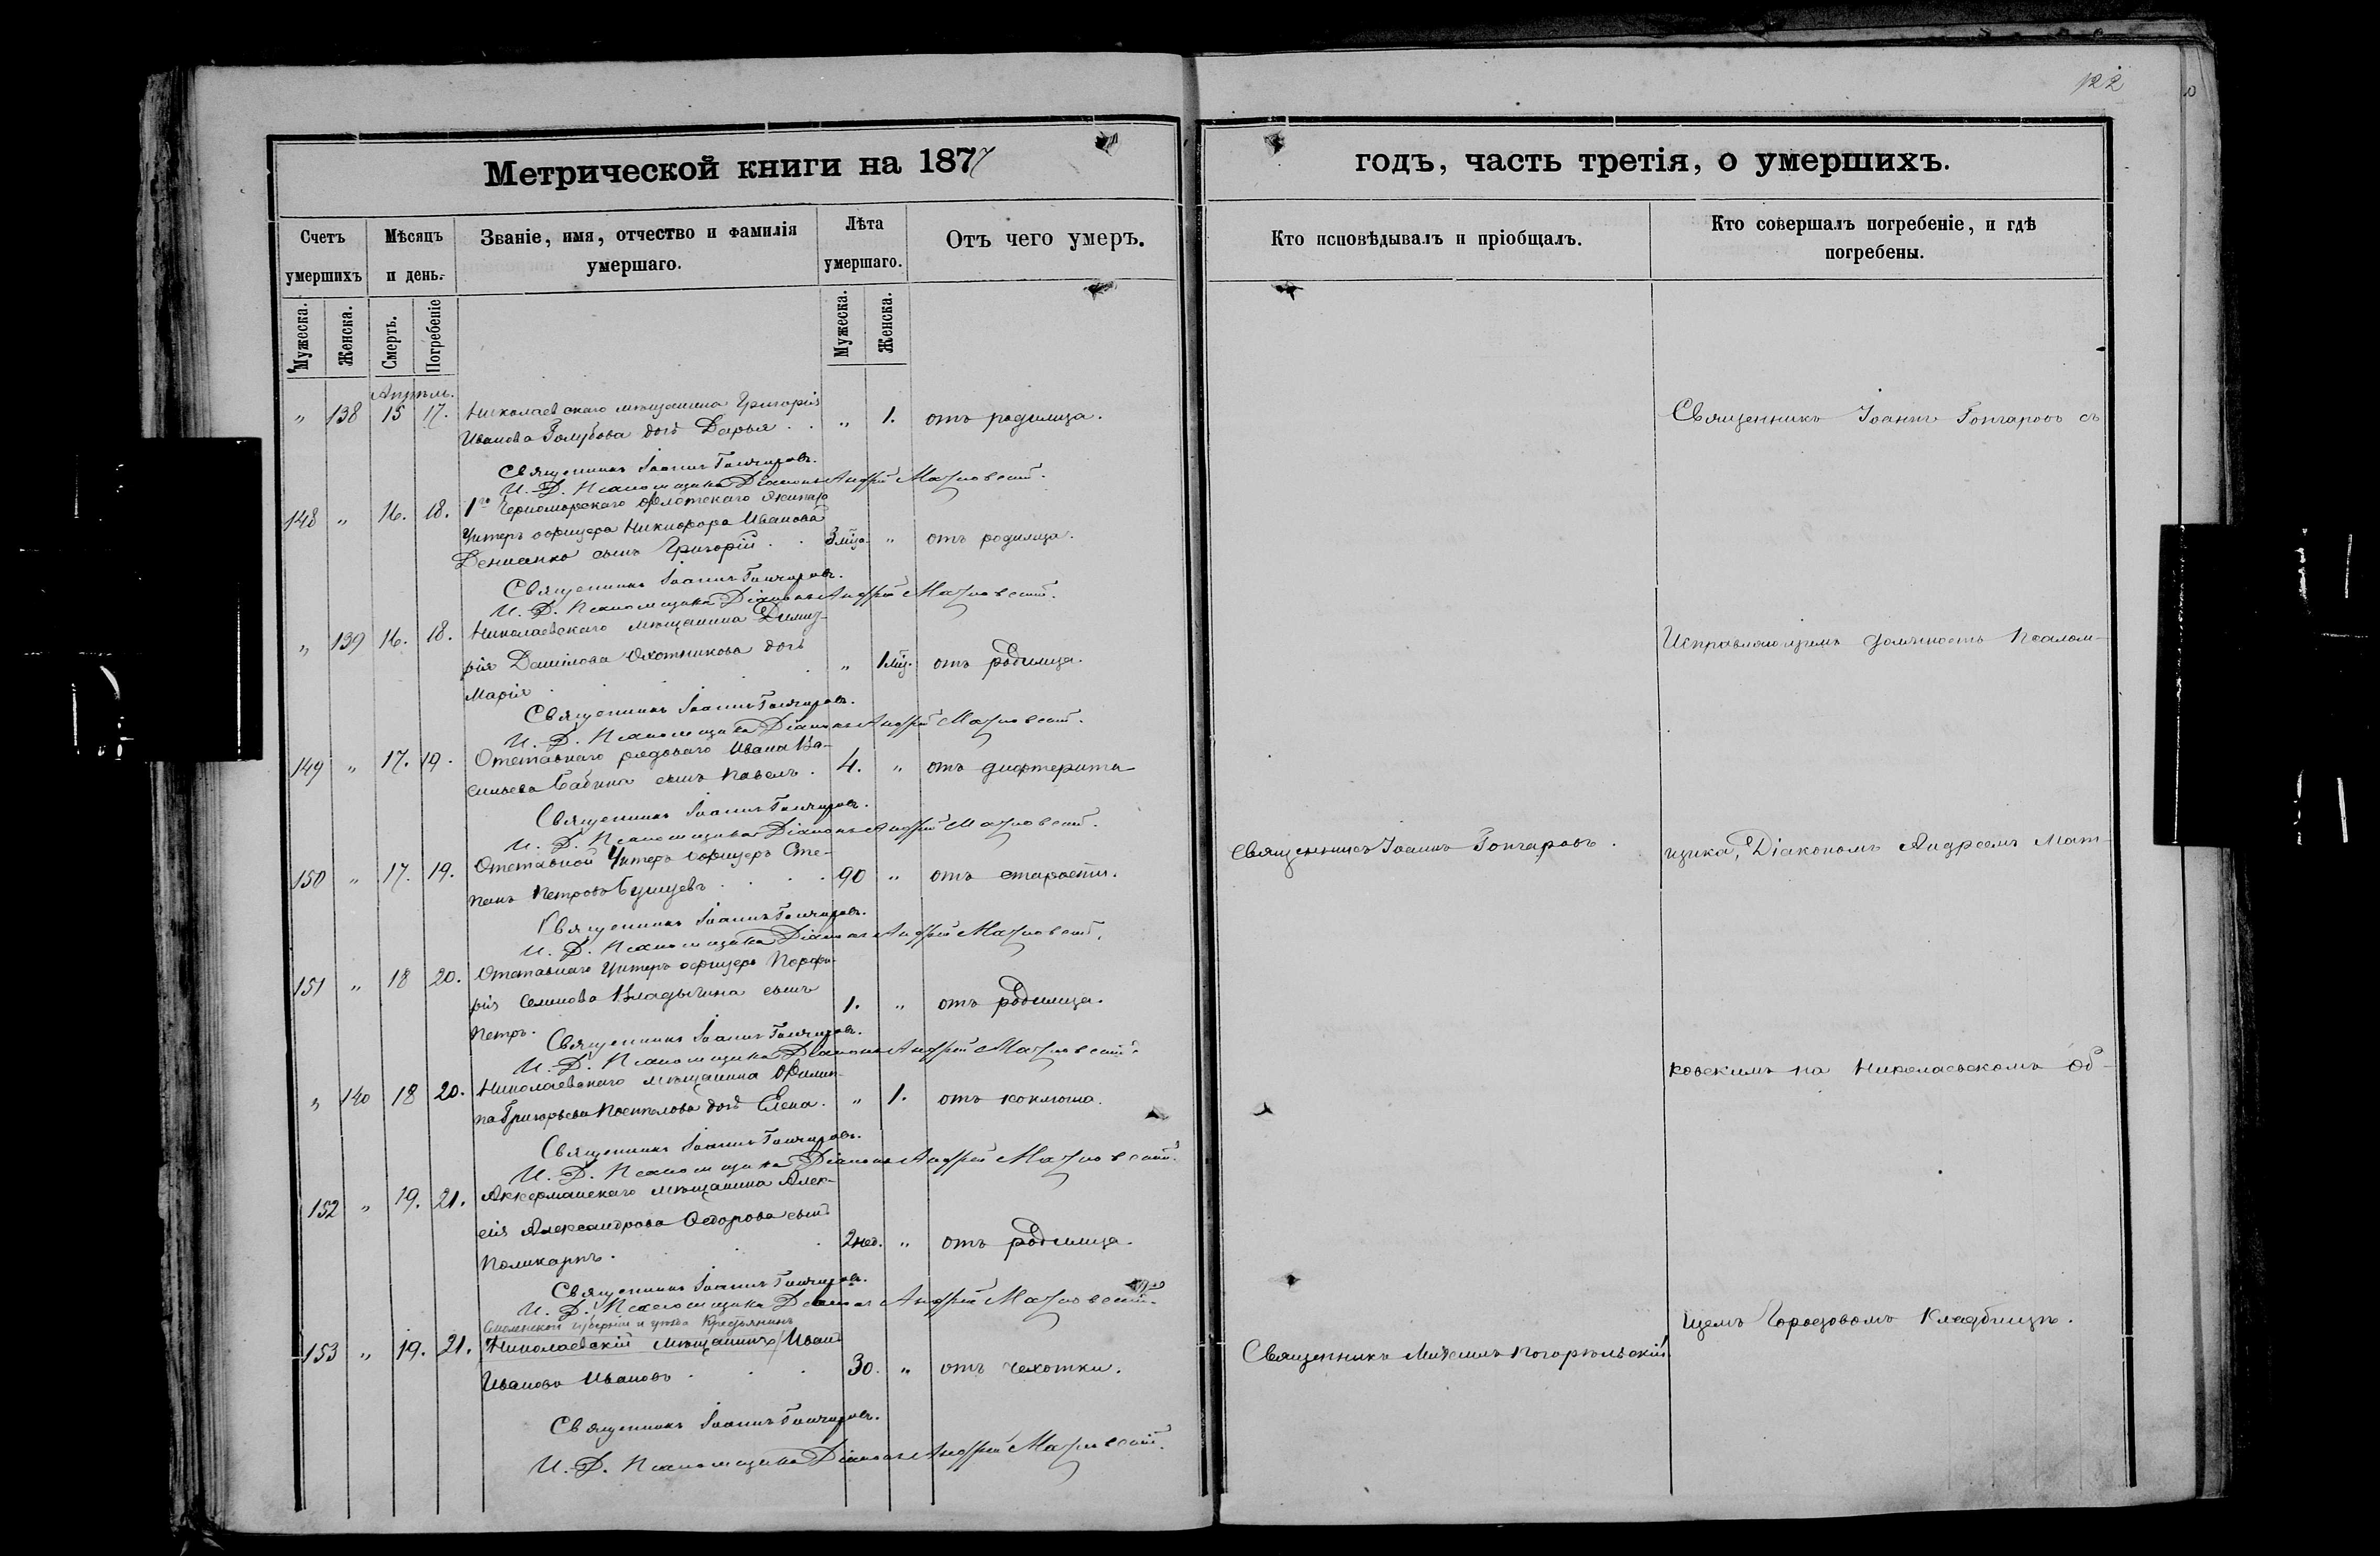 122
Метрической книги на 1877
годъ, часть третія, о умершихъ.
Счетъ умершихъ
Мѣсяцъ и день.
Званіе, имя, отчество и фамилія умершаго.
Лѣта умершаго.
Отъ чего умеръ.
Кто исповѣдывалъ и пріобщалъ.
Кто совершалъ погребеніе, и гдѣ погребены.
Мужеска.
Женска.
Смерть.
Погребеніе
Мужеска.
Женска.
Апрѣль.
" 138 15 17. Николаевскаго мѣщанина Григорія
Иванова Голубова дочь Дарья . . " 1. отъ родимца.
Священникъ Іоаннъ Гончаровъ.
И. Д. Псаломщика Діаконъ Андрей Матковскій.
148 " 16. 18. 1го Черноморскаго флотскаго экипажа
Унтеръ офицера Никифора Иванова
Денисенко сынъ Григорій . . 3 мѣса. " отъ родимца.
Священникъ Іоаннъ Гончаровъ.
И. Д. Псаломщика Діаконъ Андрей Матковскій.
" 139 16. 18. Николаевскаго мѣщанина Димит-
рія Данилова Охотникова дочь
Марія . " 1 мѣс. отъ родимца.
Священникъ Іоаннъ Гончаровъ.
И. Д. Псаломщика Діаконъ Андрей Матковскій.
149 " 17. 19. Отставнаго рядоваго Ивана Ва-
сильева Бабкина сынъ Павелъ . 4. " отъ дифтерита
Священникъ Іоаннъ Гончаровъ.
И. Д. Псаломщика Діаконъ Андрей Матковскій.
150 " 17. 19. Отставной Унтеръ офицеръ Сте-
панъ Петровъ . 90 " отъ старости.
Священникъ Іоаннъ Гончаровъ.
И. Д. Псаломщика Діаконъ Андрей Матковскій.
151 " 18 20. Отставнаго Унтеръ офицера Порфи-
рія Семенова Владычина сынъ
Петръ. 1. " отъ родимца.
Священникъ Іоаннъ Гончаровъ.
И. Д. Псаломщика Діаконъ Андрей Матковскій.
" 140 18 20. Николаевскаго мѣщанина Филип-
па Григорьева Поспѣлова дочь Елена. " 1. отъ коклюша.
Священникъ Іоаннъ Гончаровъ.
И. Д. Псаломщика Діаконъ Андрей Матковскій.
152 " 19. 21. Аккерманскаго мѣщанина Алек-
сія Александрова Ѳедорова сынъ
Поликарпъ. 2 нед. " отъ родимца.
Священникъ Іоаннъ Гончаровъ.
И. Д. Псаломщика Діаконъ Андрей Матковскій.
Смоленской губерніи и уѣзда Крестьянинъ
153 " 19. 21. Николаевскій мѣщанинъ Иванъ
Ивановъ Ивановъ . . . 30. " отъ чахотки.
Священникъ Іоаннъ Гончаровъ.
И. Д. Псаломщика Діаконъ Андрей Матковскій.
Священникъ Іоаннъ Гончаровъ.
Священникъ Михаилъ Погорѣльскій
Священникъ Іоаннъ Гончаровъ съ
Исправляющимъ должность Псалом-
щика, Діакономъ Андреемъ Мат-
ковскимъ на Николаевскомъ об-
щемъ Городовомъ Кладбищѣ.